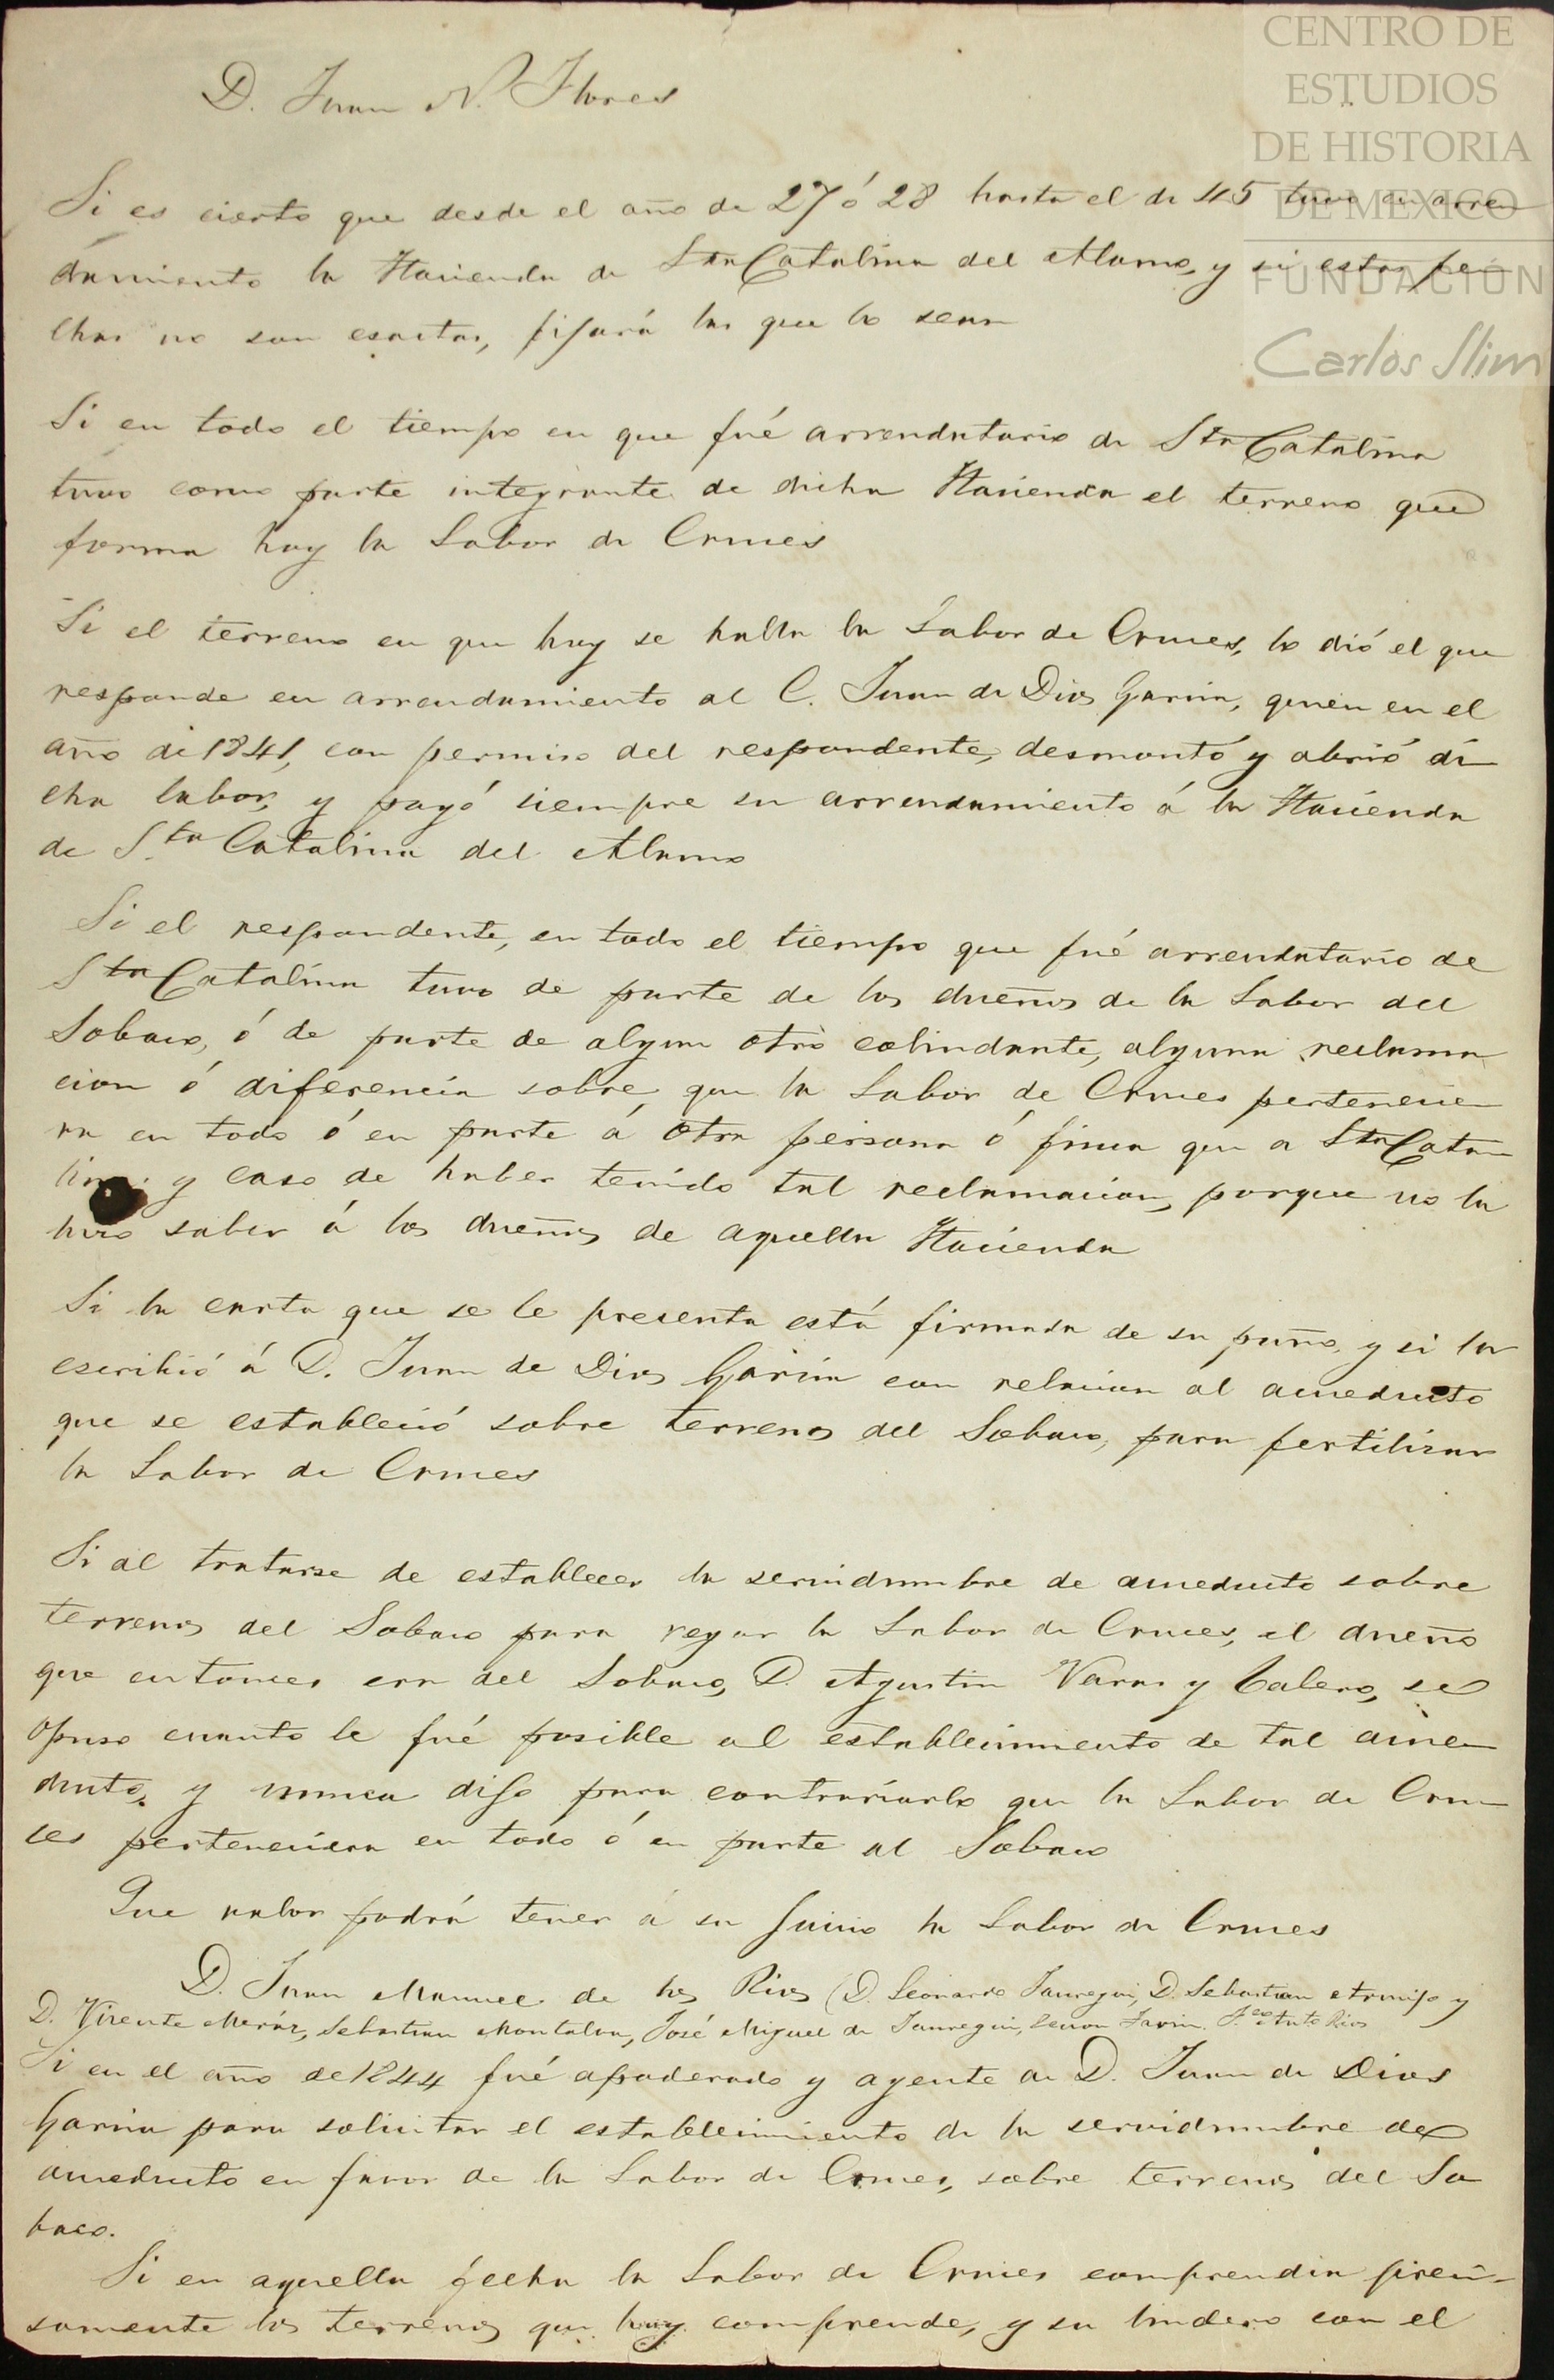 CENTRO DE
ESTUDIOS
DE HISTORIA
DE MEXICO
FUNDACIÓN
Carlos Slim
D. Juan N. Flores
Si es cierto que desde el año de 27 ó 28 hasta el de 45 tuvo en arren
damiento la Hacienda de Sta Catalina del Alamo, y si estas fe
chas no son esactas, fijará las que lo sean
Si en todo el tiempo en que fué arrendatario de Sta Catalina
tuvo como parte integrante de dicha Hacienda el terreno que
forma hoy la Labor de Cruces
Si el terreno en que hoy se halla la Labor de Cruces, lo dió el que
responde en arrendamiento al C. Juan de Dios Garcia, quien en el
año de 1841, con permiso del respondente, desmontó y abrió di
cha labor, y pagó siempre su arrendamiento á la Hacienda
de Sta Catalina del Alamo
Si el respondente, en todo el tiempo que fué arrendatario de
Sta Catalina tuvo de parte de los dueños de la Labor del
Sobaco, ó de parte de algun otro colindante, alguna reclama
cion ó diferencia sobre que la Labor de Cruces pertenecie
ra en todo ó en parte á otra persona ó finca que a Sta Cata
lina; y caso de haber tenido tal reclamacion, porque no la
hizo saber á los dueños de aquella Hacienda
Si la carta que se le presenta está firmada de su puño, y si la
escribió á D. Juan de Dios Garcia con relacion al acueducto
que se estableció sobre terrenos del Sobaco, para fertilizar
la Labor de Cruces
Si al tratarse de establecer la servidumbre de acueducto sobre
terrenos del Sobaco para regar la Labor de Cruces, el dueño
que entonces era del Sobaco, D. Agustin Varas y Calero, se
opuso cuanto le fué posible al establecimiento de tal acue
ducto, y nunca dijo para contrariarlo que la Labor de Cru
ces perteneciera en todo ó en parte al Sobaco
Que valor podrá tener á su juicio la Labor de Cruces
D. Juan Manuel de los Rios (D. Leonardo Jauregui, D. Sebastian y
D. Vicente Meráz, Sebastian Montalvo, José Miguel de Jauregui, Rios
Si en el año de 1844 fué apoderado y agente de D. Juan de Dios
Garcia para solicitar el establecimiento de la servidumbre de
acueducto en favor de la Labor de Cruces, sobre terrenos del So
baco.
Si en aquella fecha la Labor de Cruces comprendia preci-
samente los terrenos que hoy comprende, y su lindero con el